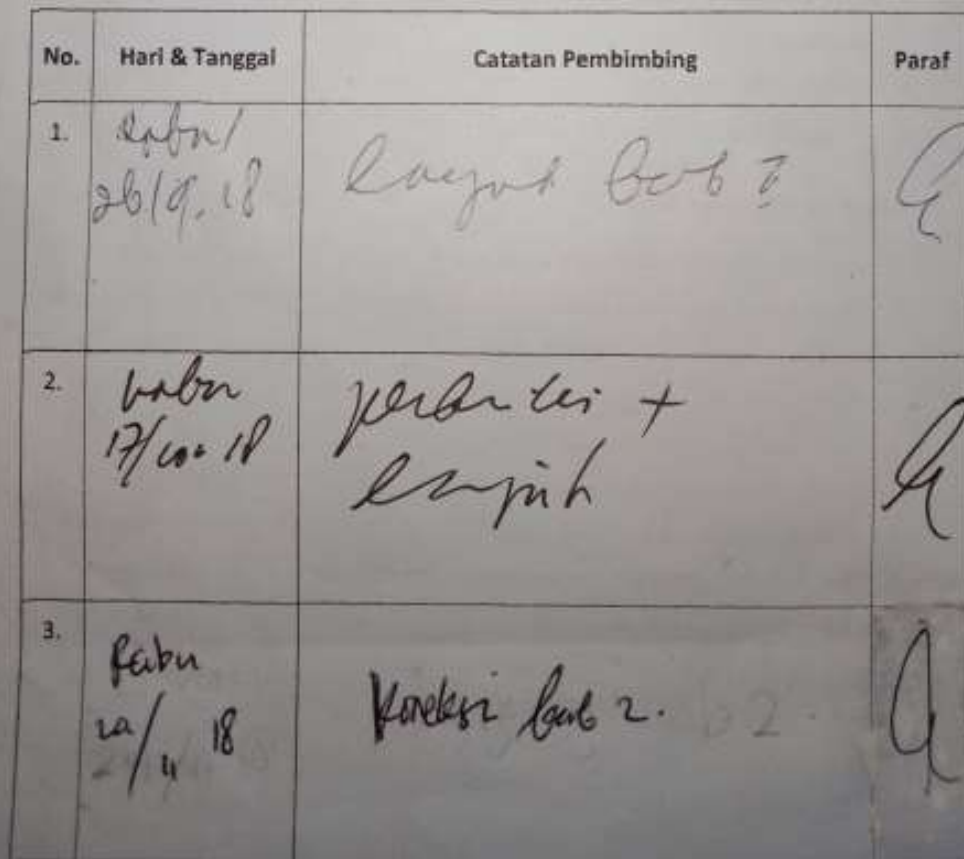 No. Hari & Tanggal Catatan Pembimbing Paraf
1. Rabu/
26/9. 18 bab I
2. Rabu
17/10 18 perbaiki +
lanjut
3. Rabu
/11 18 Koreksi bab 2.